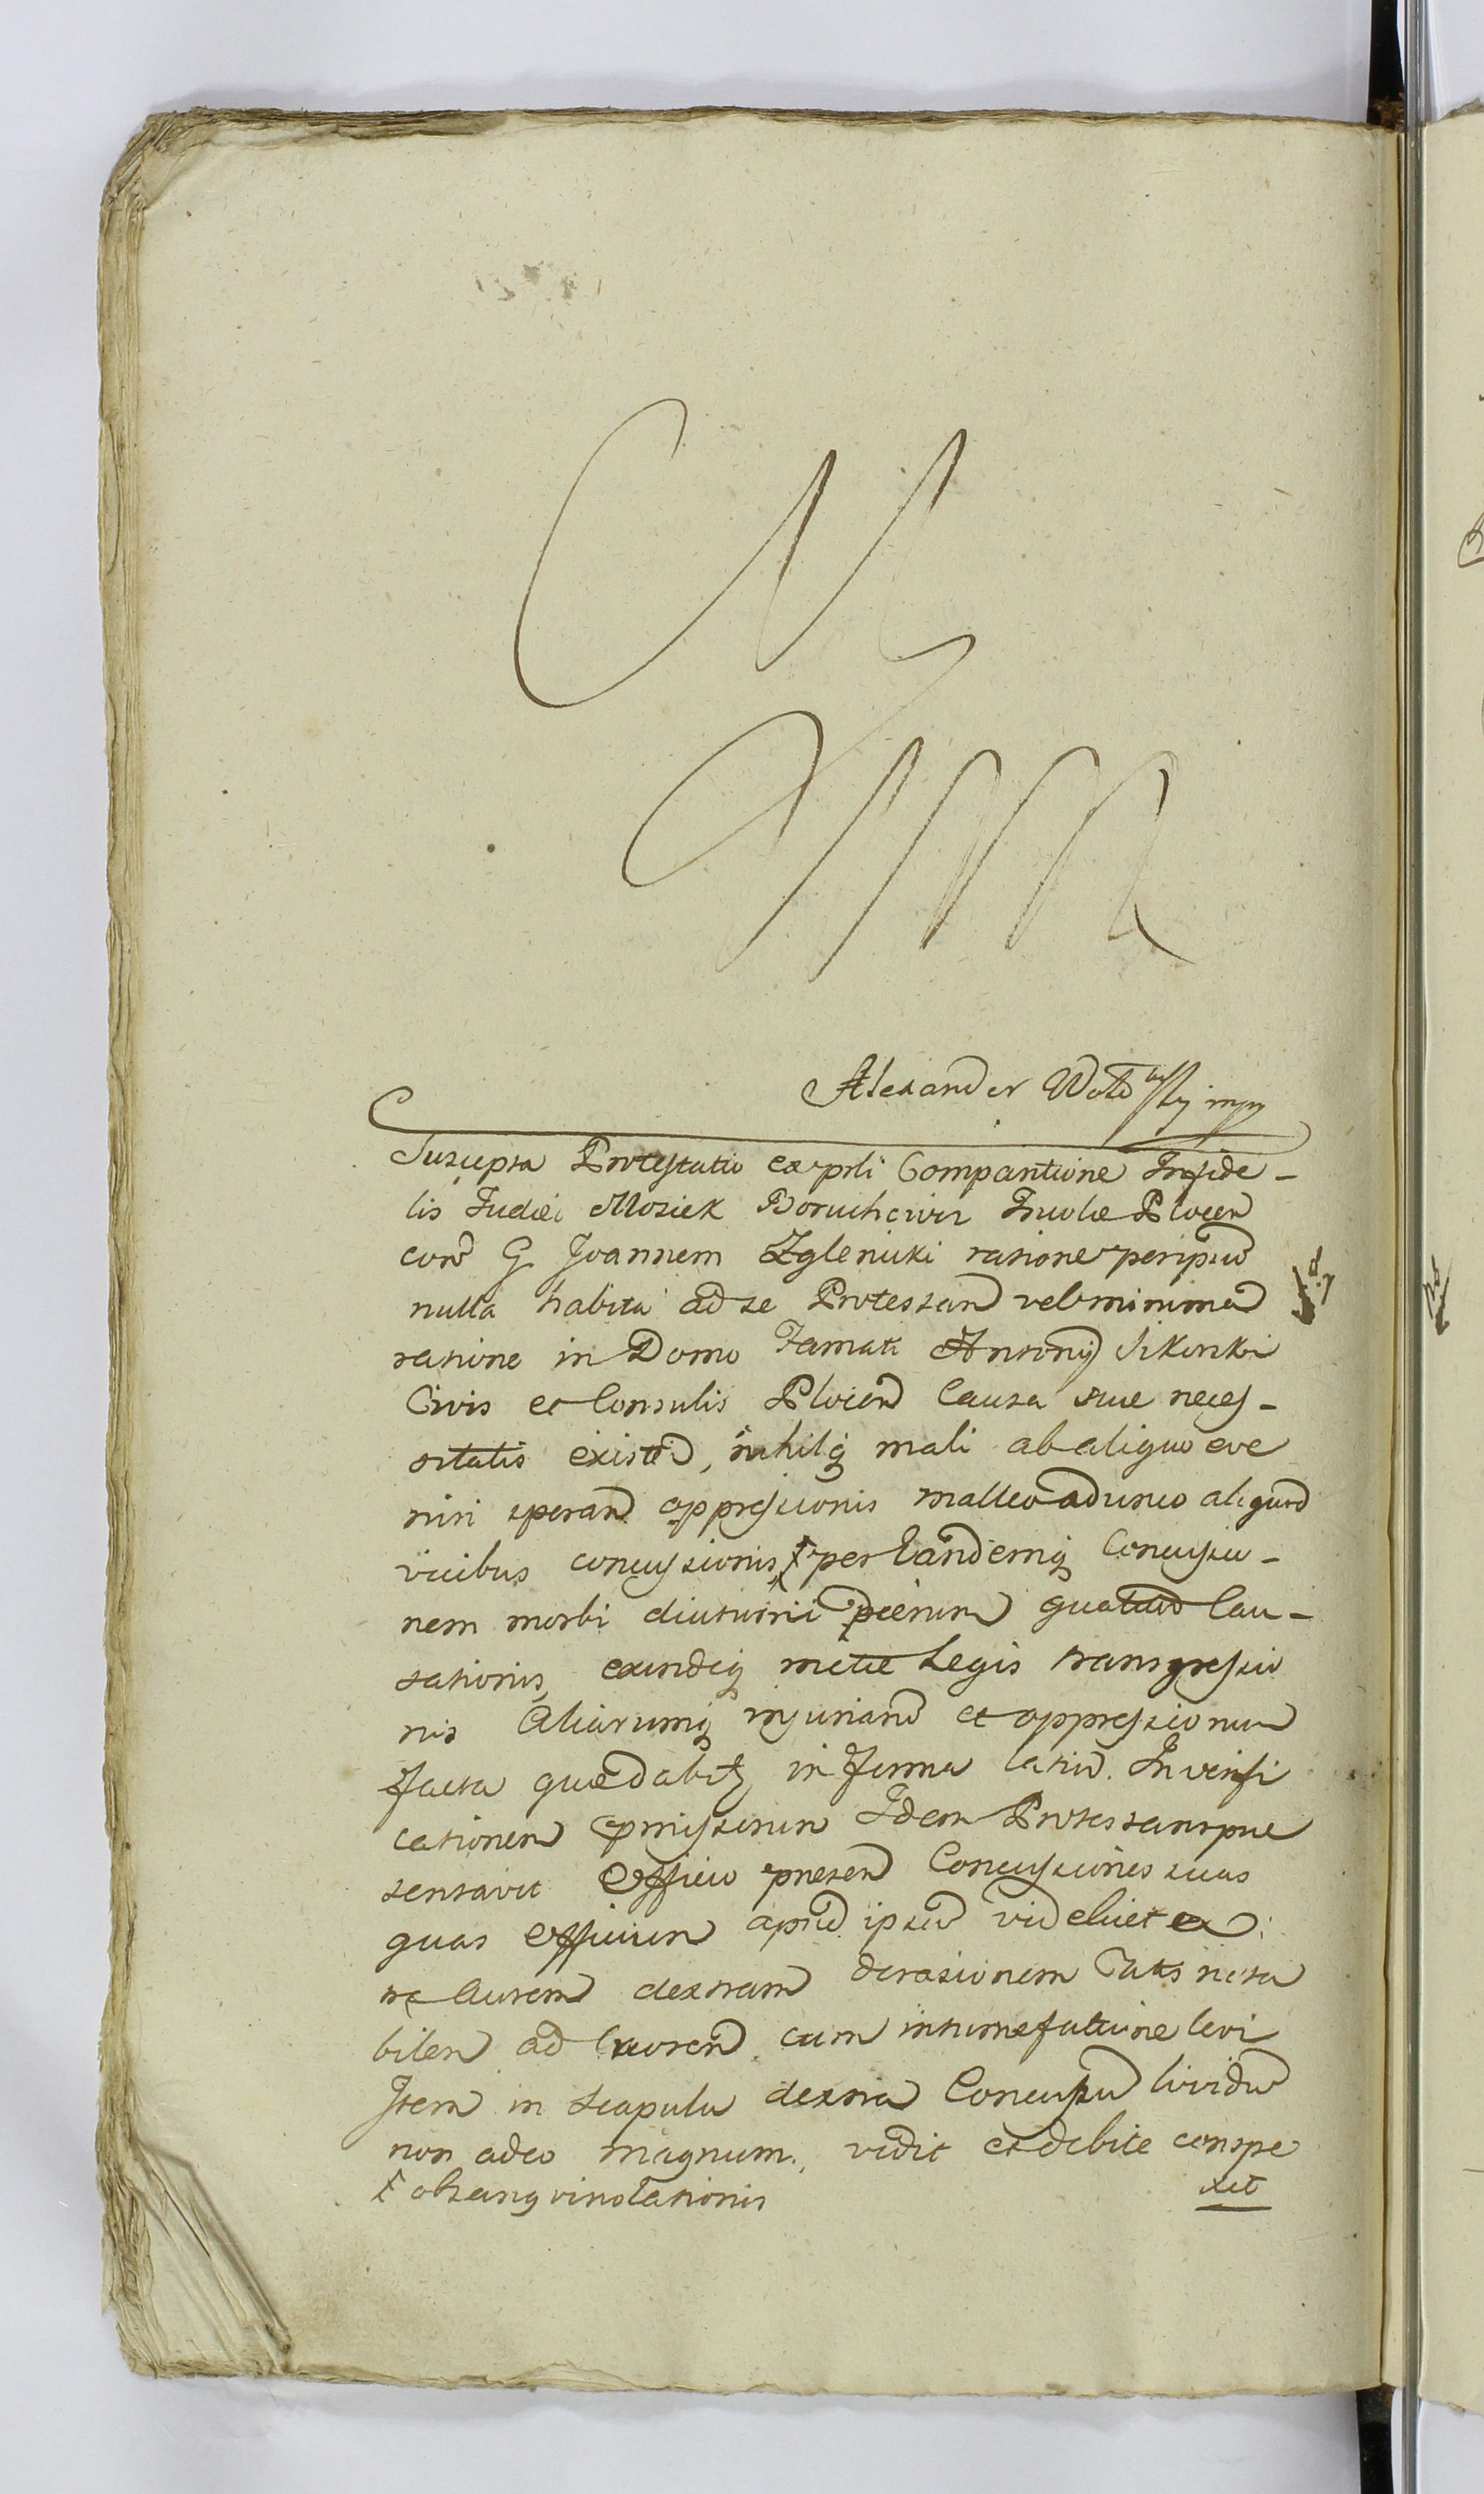 Alexander
Suscepta Protestatio ex prsli Compantione Infide-
lis Judæi Mosiek Boruchowicz Incolæ Plocen
con G. Joannem Zglenicki ratione
nulla habita ad se Protestan vel minima
ratione in Domo Famati Antonij Sikorski
Civis et Consulis Plocen Causa suæ neces-
sitatis existen, nihilq mali ab aliquo eve
niri speran oppressionis malleo adunco aliquod
vicibus concussionis, per eandemq Concussio-
nem morbi diuturni Cau-
sationis, exindeq metæ Legis transgressio
nis Aliarumq injuriaru et oppressionum
facta quæ dabitr in forma latiu. In verifi
cationem pmissorum Idem Protestans præ
sentavit Officio præsen Concussiones suas
quas Officium apud ipsum videlicet ex
tre Aurem dextram derasionem satis nota
bilem ad cruorem cum intumefactione levi
Item in scapula dextra Concussum lividum
non adeo magnum, vidit et debite conspe
obsangvinolationis xit